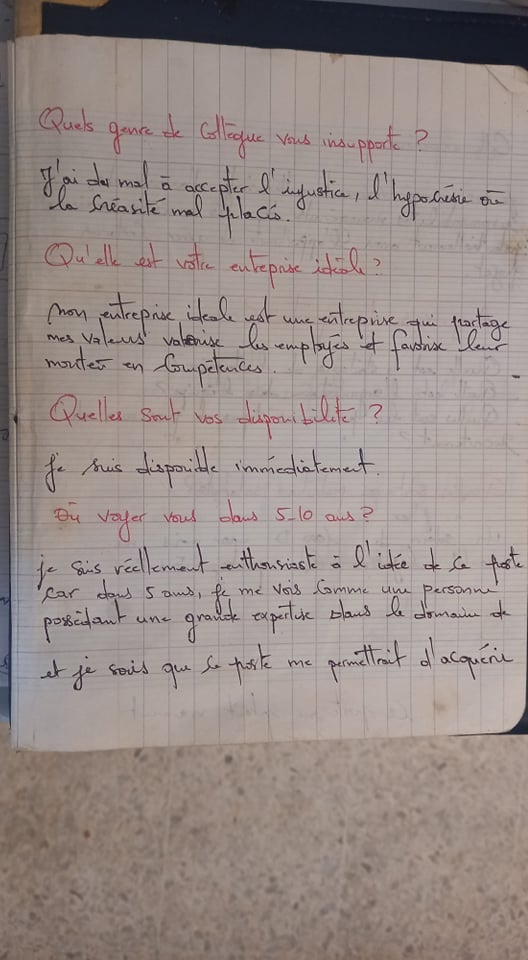 Quels genre de Collègue vous insupporte ?
J'ai du mal à accepter l'injustice, l'hypocrésie ou
la Créasité mal placés.
Qu'elle est votre entreprise idéale ?
Mon entreprise ideale est une entreprise qui partage
mes valeurs valorise les employes et favorise leur
monteé en Compétences.
Quelles sont vos disponibilité ?
je suis disponible immédiatement.
Où voyer vous dans 5-10 ans ?
je suis réellement enthousiaste à l'idée de ce poste
car dans 5 ans, je me vois comme une personne
possédant une grande expertise dans le domaine de
et je sais que ce poste me permettrait d'acquérir